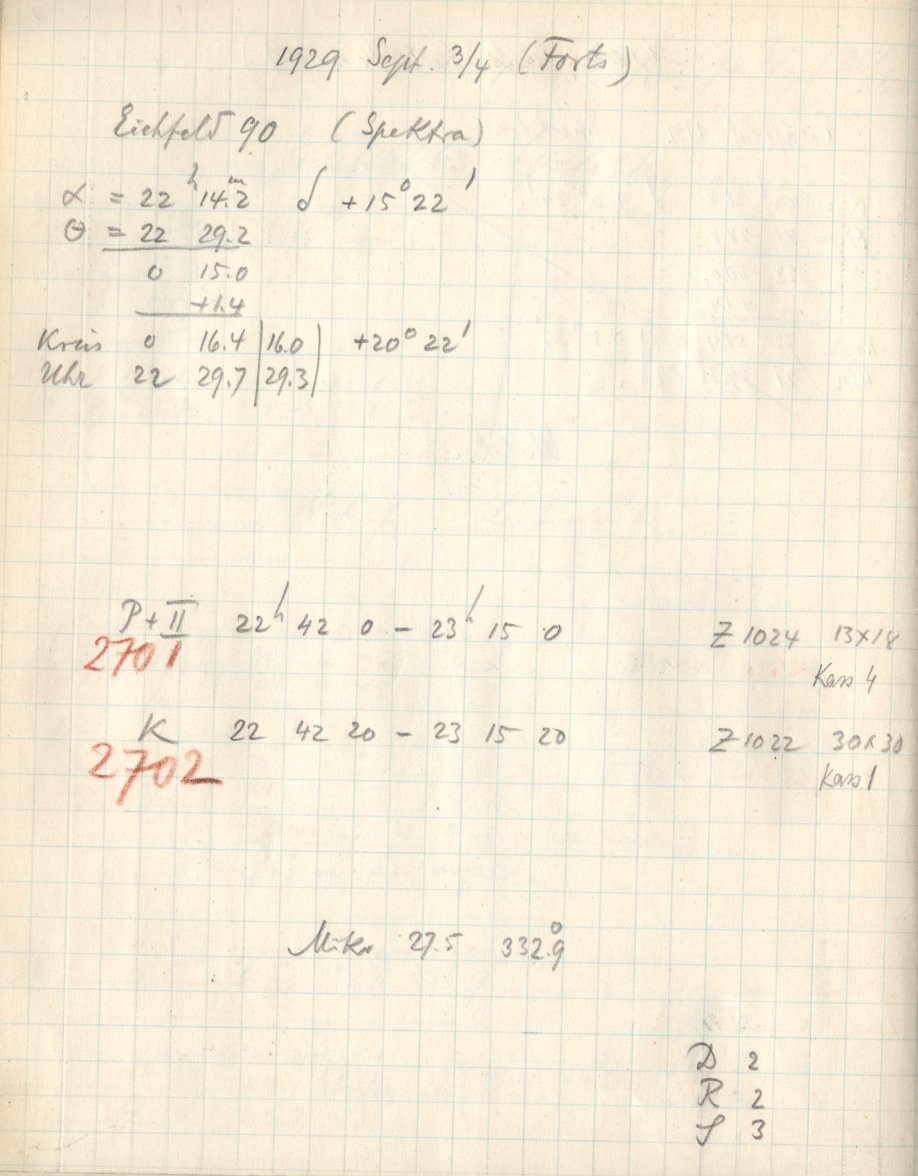 1929 Sept. 3/4 (Forts)
Eichfeld 90 (Spektra)
α = 22ʰ 14.2ᵐ δ +15° 22'
Θ = 22 29.2
0 15.0
+1.4
Kreis 0 16.4 | 16.0 | +20° 22'
Uhr 22 29.7 | 29.3 |
P + II 22ʰ 42 0 – 23ʰ 15 0 Z 1024 13×18
2701 Kass 4
K 22 42 20 – 23 15 20 Z 1022 30×30
2702 Kass 1
Mikr 27.5 332.9°
D 2
R 2
S 3